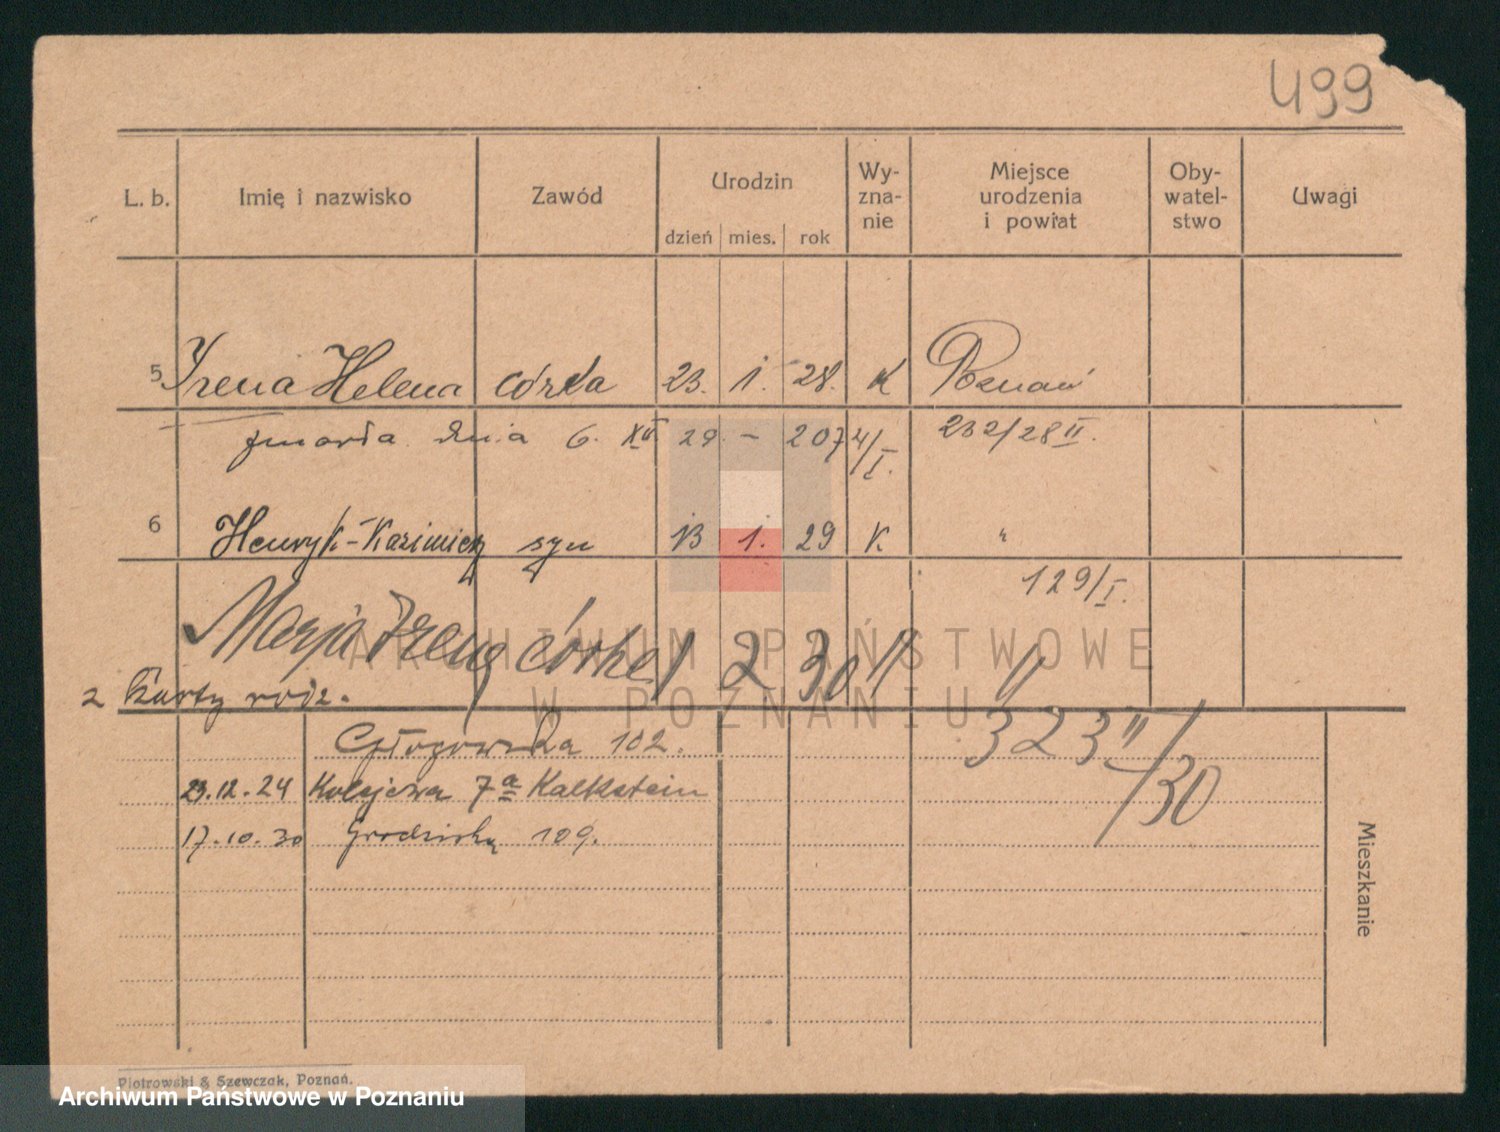 499
L. b. Imię i nazwisko Zawód Urodzin dzień mies. rok Wy-zna-nie Miejsce urodzenia i powiat Oby-watel-stwo Uwagi
5 Irena Helena córka 23. 1. 28. K Poznań
zmarła dnia 6. XII 29 - 2074/I. 232/28 II.
6 Henryk-Kazimierz syn 13 1. 29 K "
129/I.
Marja Irena córka 1 2 30 " "
2 Karty rodz.
323 II/30
Głogowska 102.
23.12.24 Kolejowa 7a Kalkstein
17.10.30 Grodziska 109.
Mieszkanie
ARCHIWUM PAŃSTWOWE
W POZNANIU
Piotrowski & Szewczak, Poznań.
Archiwum Państwowe w Poznaniu